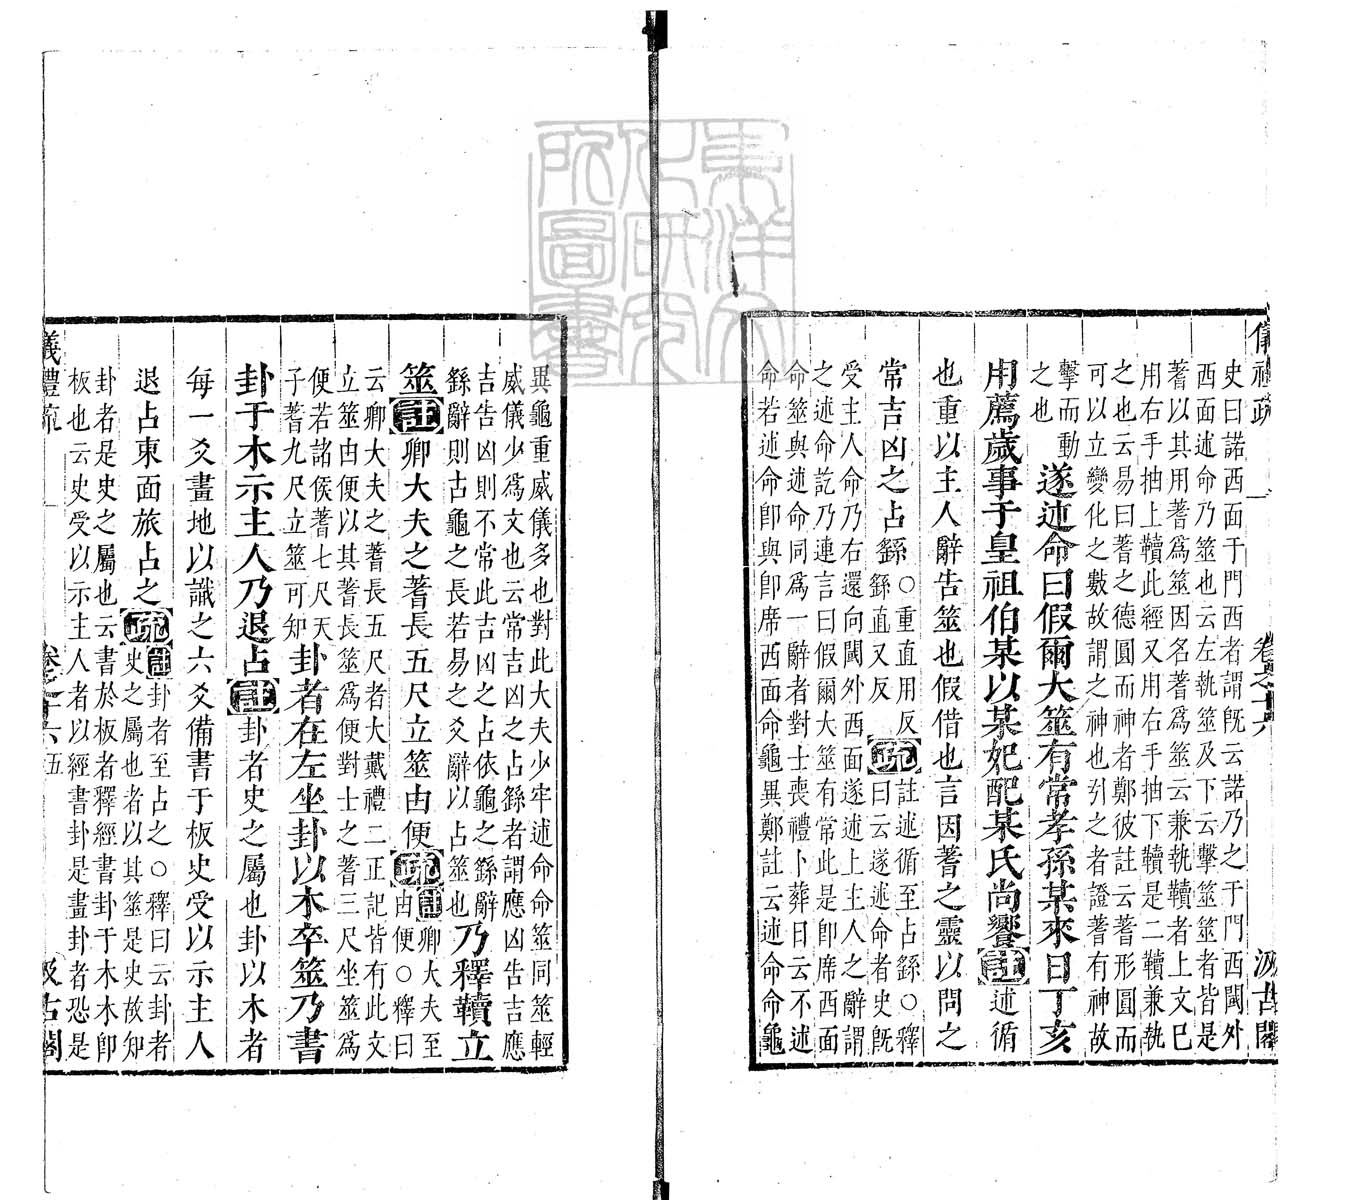 史曰諾西面于門西者謂旣云諾乃之于門西闑外
西面述命乃筮也云左執筮及下云擊筮筮者皆是
蓍以其用蓍爲筮因名蓍爲筮云兼執韇者上文巳
用右手抽上韇此經又用右手抽下韇是二韇兼執
之也云易曰蓍之德圓而神者鄭彼註云蓍形圓而
可以立變化之數故謂之神也引之者證蓍有神故
擊而動
之也
遂述命曰假爾大筮有常孝孫某來日丁亥
用薦歲事于皇祖伯某以某妃配某氏尚饗註述循
也重以主人辭告筮也假借也言因蓍之靈以問之
常吉凶之占繇
○重直用反
繇直又反
疏註述循至占繇○釋
曰云遂述命者史旣
受主人命乃右還向闑外西面遂述上主人之辭謂
之述命訖乃連言曰假爾大筮有常此是卽席西面
命筮與述命同爲一辭者對士喪禮卜葬日云不述
命若述命卽與卽席西面命龜異鄭註云述命命龜
異龜重威儀多也對此大夫少牢述命命筮同筮輕
威儀少爲文也云常吉凶之占繇者謂應凶告吉應
吉告凶則不常此吉凶之占依龜之繇辭
繇辭則占龜之長若易之爻辭以占筮也
乃釋韇立
筮註卿大夫之蓍長五尺立筮由便疏註卿大夫至
由便○釋曰
云卿大夫之蓍長五尺者大戴禮二正記皆有此文
立筮由便以其蓍長筮爲便對士之蓍三尺坐筮爲
便若諸侯蓍七尺天
子蓍九尺立筮可知
卦者在左坐卦以木卒筮乃書
卦于木示主人乃退占註卦者史之屬也卦以木者
每一爻畫地以識之六爻備書于板史受以示主人
退占東面旅占之疏註卦者至占之○釋曰云卦者
史之屬也者以其筮是史故知
卦者是史之屬也云書於板者釋經書卦于木木卽
板也云史受以示主人者以經書卦是畫卦者恐是
儀禮疏
卷之十六
五
汲古閣